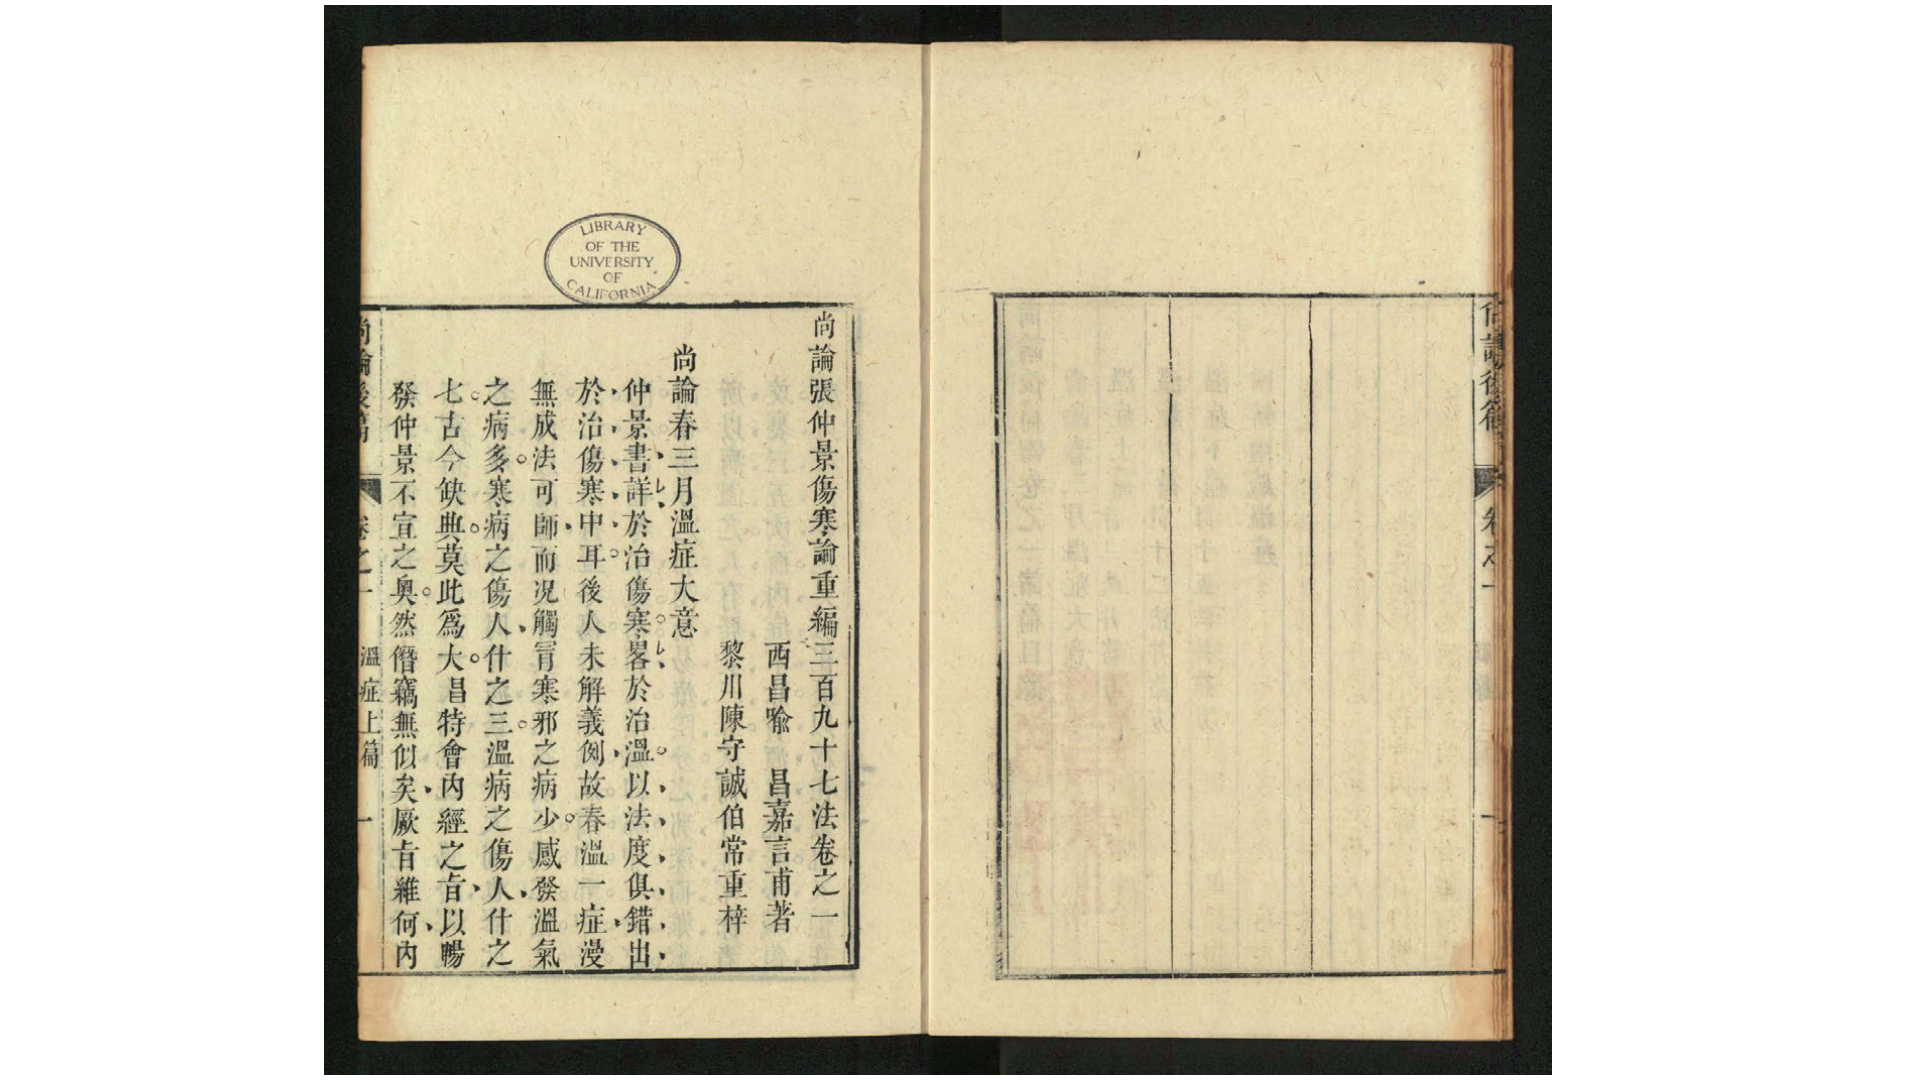 尚論張仲景傷寒論重編三百九十七法卷之一
西昌喻　昌嘉言甫著
黎川陳守誠伯常重梓
尚論春三月溫症大意
仲景書詳於治傷寒畧於治溫以法度俱錯出
於治傷寒中耳後人未解義例故春溫一症漫
無成法可師而况觸冐寒邪之病少感發溫氣
之病多寒病之傷人什之三溫病之傷人什之
七古今缺典莫此爲大昌特會內經之旨以暢
發仲景不宣之奧然僭竊無似矣厥旨維何內
尚論後篇　卷之一　溫症上篇　一
LIBRARY
OF THE
UNIVERSITY
OF
CALIFORNIA
尚論後篇　卷之一　一